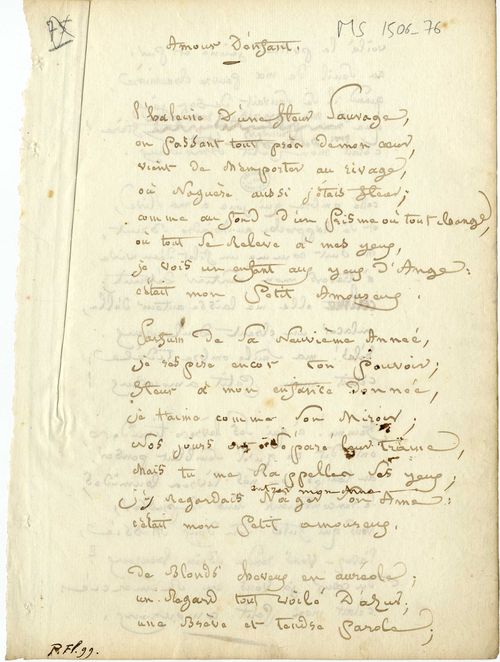 75
MS 1506-76
Amour D'enfant.
l'haleine d'une fleur Sauvage,
en passant tout près de mon cœur,
vient de m'emporter au rivage,
où Naguère aussi j'étais fleur;
comme au fond d'un Prisme où tout change,
où tout Se Relève à mes yeux,
je vois un enfant aux yeux d'Ange:
c'était mon Petit Amoureux.
Parfum de Sa Neuvième Année,
je respire encor ton pouvoir;
fleur à mon enfance Donnée,
je t'aime comme Son Miroir;
Nos jours ont séparé leur trâme,
Mais tu me Rappelles Ses yeux,
j'y Regardais Nager Son Ame:
entrer mon Ame
c'était mon Petit amoureux.
De Blonds cheveux en auréole;
un Regard tout voilé D'azur;
une Brève et tendre parole;
P. Fl. 99.